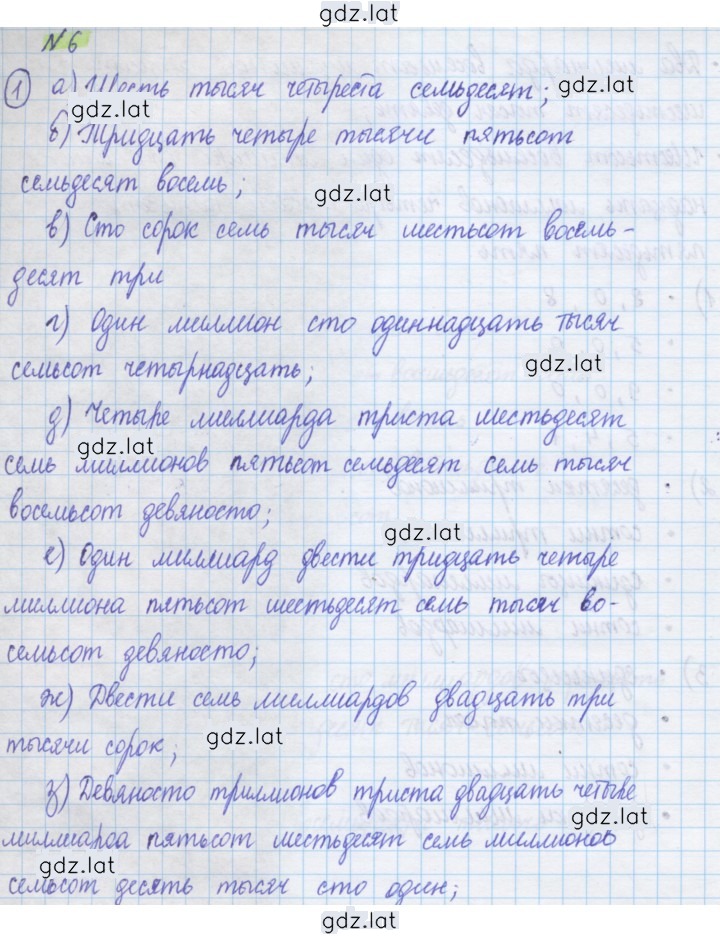 gdz.lat
№ 6
1) а) Шесть тысяч четыреста семьдесят; gdz.lat
gdz.lat
б) Тридцать четыре тысячи пятьсот
семьдесят восемь;
gdz.lat
в) Сто сорок семь тысяч шестьсот восемь-
десят три
г) Один миллион сто одиннадцать тысяч
семьсот четырнадцать;
gdz.lat
д) Четыре миллиарда триста шестьдесят
gdz.lat
семь миллионов пятьсот семьдесят семь тысяч
восемьсот девяносто;
gdz.lat
е) Один миллиард двести тридцать четыре
миллиона пятьсот шестьдесят семь тысяч во-
семьсот девяносто;
ж) Двести семь миллиардов двадцать три
тысячи сорок;
gdz.lat
з) Девяносто триллионов триста двадцать четыре
gdz.lat
миллиарда пятьсот шестьдесят семь миллионов
gdz.lat
семьсот десять тысяч сто один;
gdz.lat